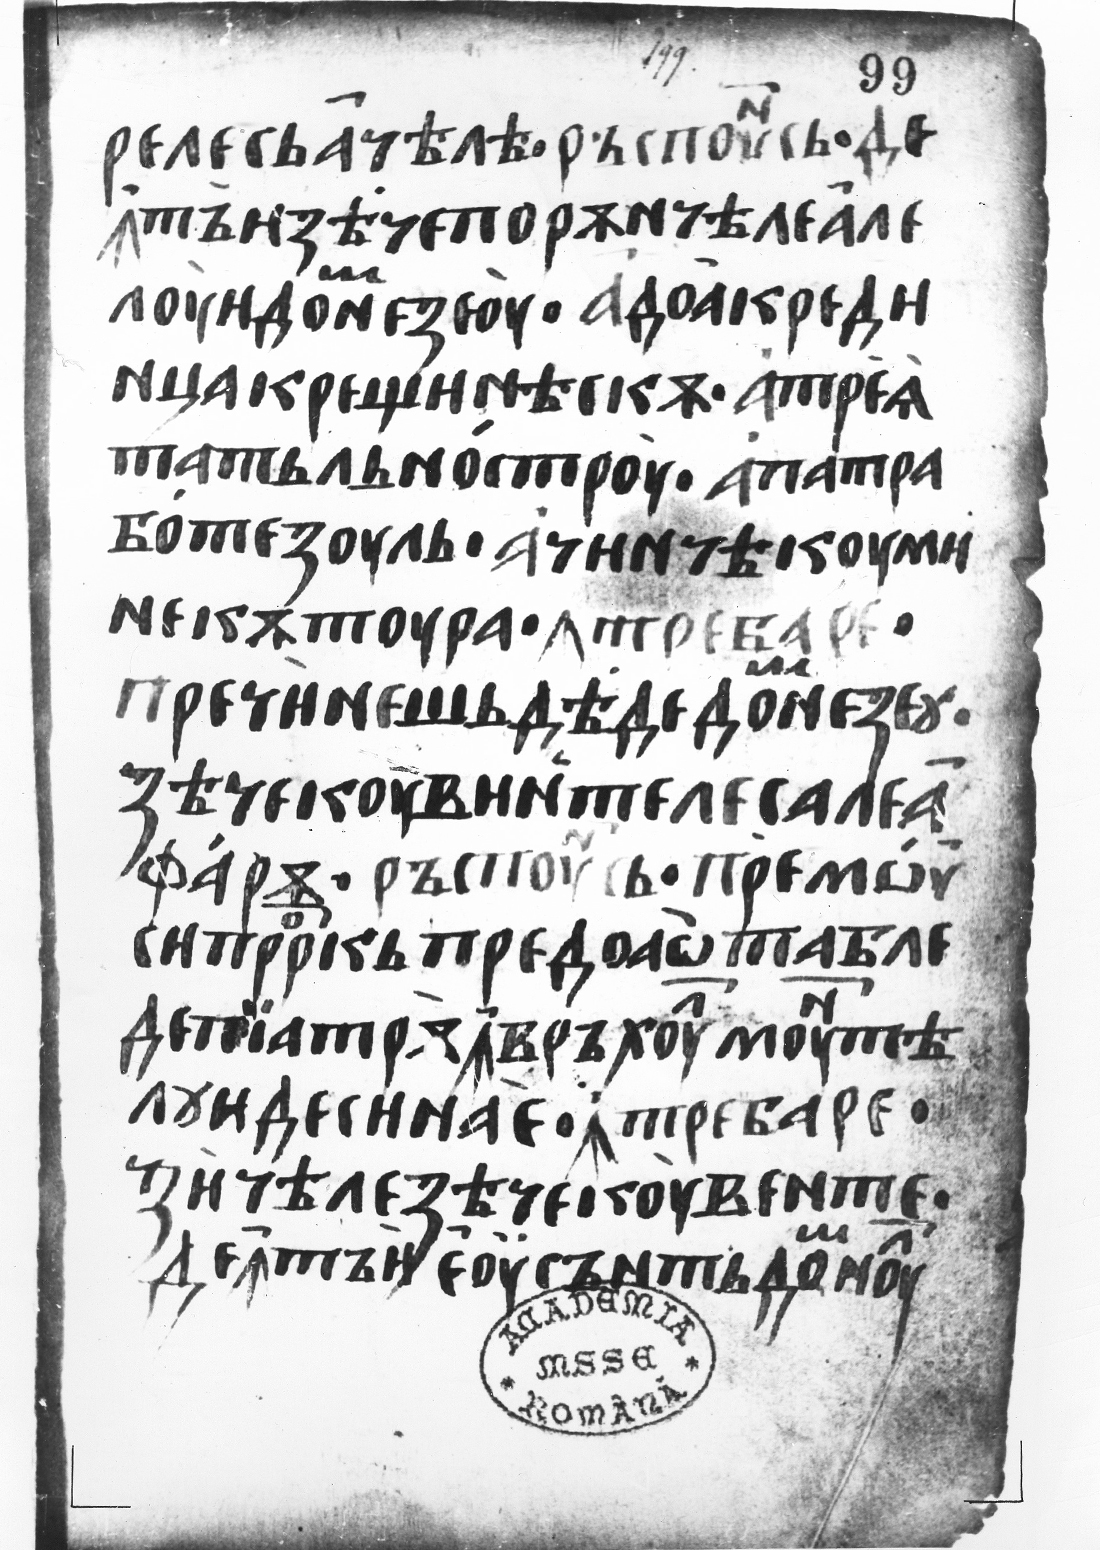 199.
99
релесь а҆чѣлѣ· ръспоу҆нсь· де
ꙟтъи зѣче порѫнчѣле а҆ле
лоуи домнеꙁеоу· а҆доа креди
нца крещинѣскѫ· атреꙗ
татьль ностроу· апатра
ботезоуль· ачинчѣ коуми
некѫтоура· ꙟтребаре·
пречинещь дѣде домнеꙁеꙋ·
зѣче коувинтеле сале а
фарѫ· ръспоунсь· преммѡу
си пророкь предоаѡ табле
де пїатрѫ ꙟ връхоул моунтѣ
лꙋи де синае· ꙟтребаре·
зи чѣле зѣче коувенте·
де ꙟтъи еоу съмть домноул
ACADEMIA
MSSE
ROMÂNĂ